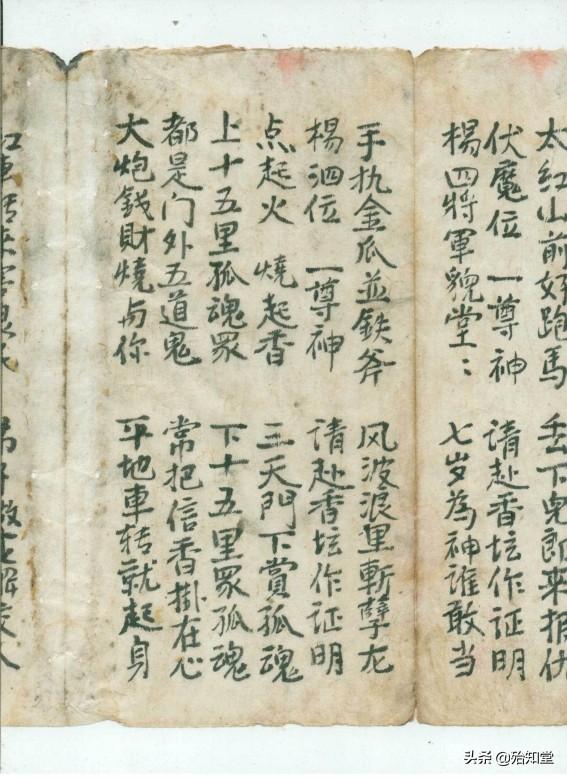 太红山前好跑馬 丢下兒郎来报仇
伏魔位 一尊神 請赴香坛作证明
楊四將軍貌堂〻 七岁為神谁敢当
手执金瓜並鉄斧 风波浪里斬孽龙
楊泗位 一尊神 請赴香坛作证明
点起火 燒起香 三天門下賞孤魂
上十五里孤魂眾 下十五里眾孤魂
都是门外五道鬼 常把信香掛在心
大炮錢財燒与你 平地車转就起身
头条 @殆知堂